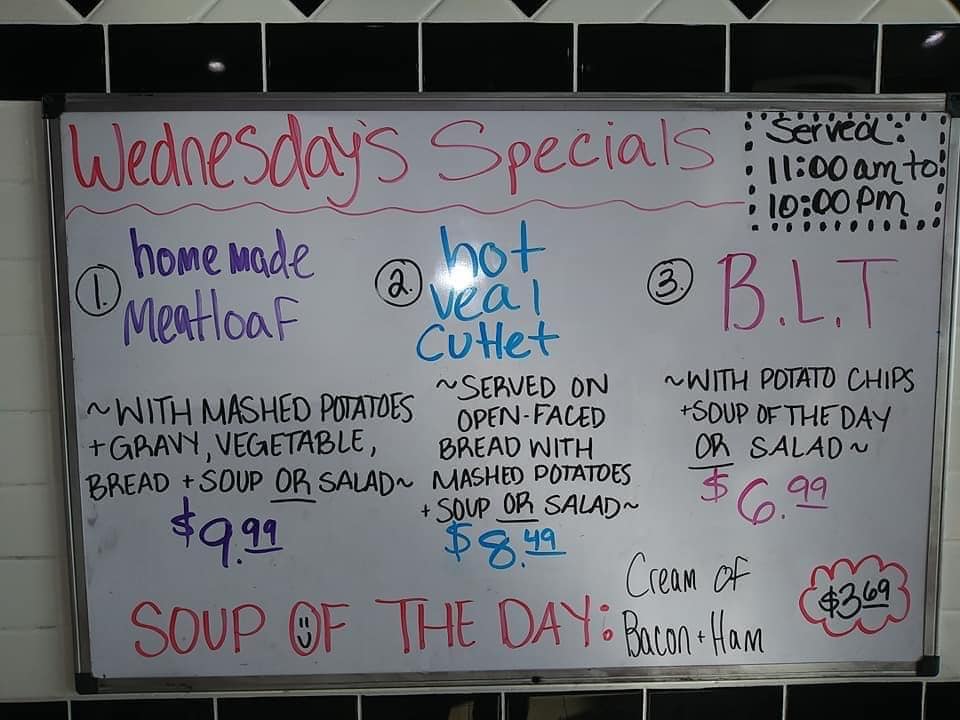 Wednesday's Specials
Served:
11:00 am to
10:00 Pm
1. homemade
Meatloaf
~WITH MASHED POTATOES
+GRAVY, VEGETABLE,
BREAD + SOUP OR SALAD~
$9.99
2. hot
veal
Cutlet
~SERVED ON
OPEN-FACED
BREAD WITH
MASHED POTATOES
+ SOUP OR SALAD~
$8.49
3. B.L.T
~WITH POTATO CHIPS
+SOUP OF THE DAY
OR SALAD~
$6.99
SOUP OF THE DAY:
Cream of
Bacon + Ham
$3.69